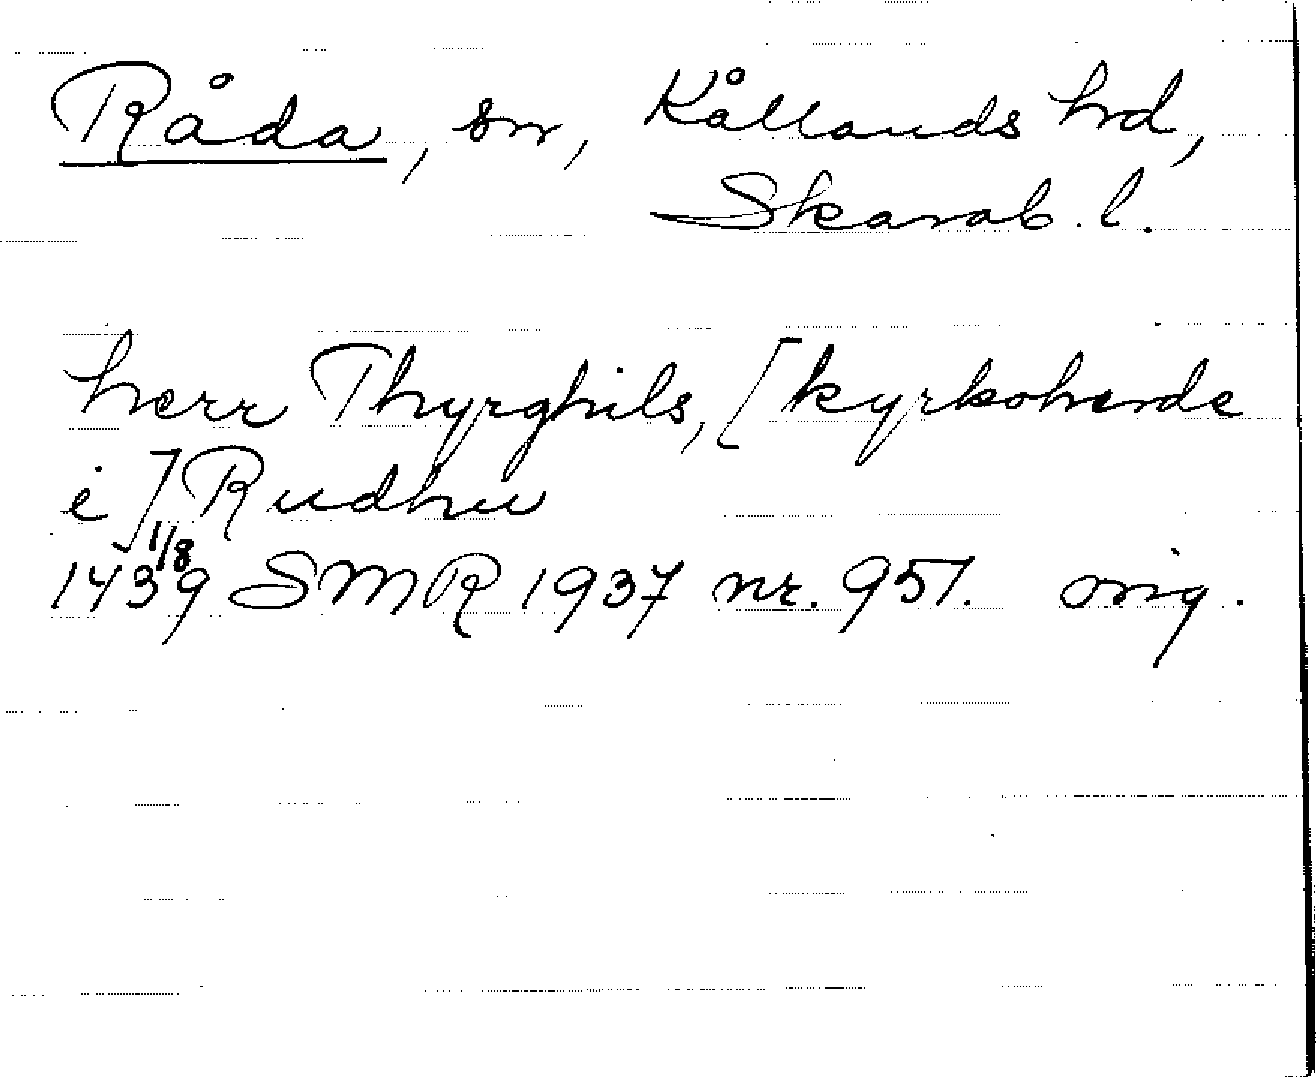 Råda, sn, Kållands hd,
Skarab. l.
herr Thyrghils, [kyrkoherde
i] Rudhu
1439 1/8 SMR 1937 nr. 951. orig.